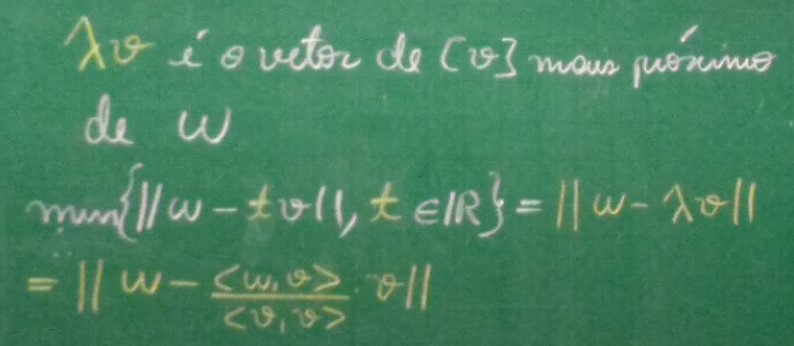 λv é o vetor de [v] mais próximo
de w
min{||w - tv||, t ∈ IR} = ||w - λv||
= ||w - <w,v>/<v,v> · v||